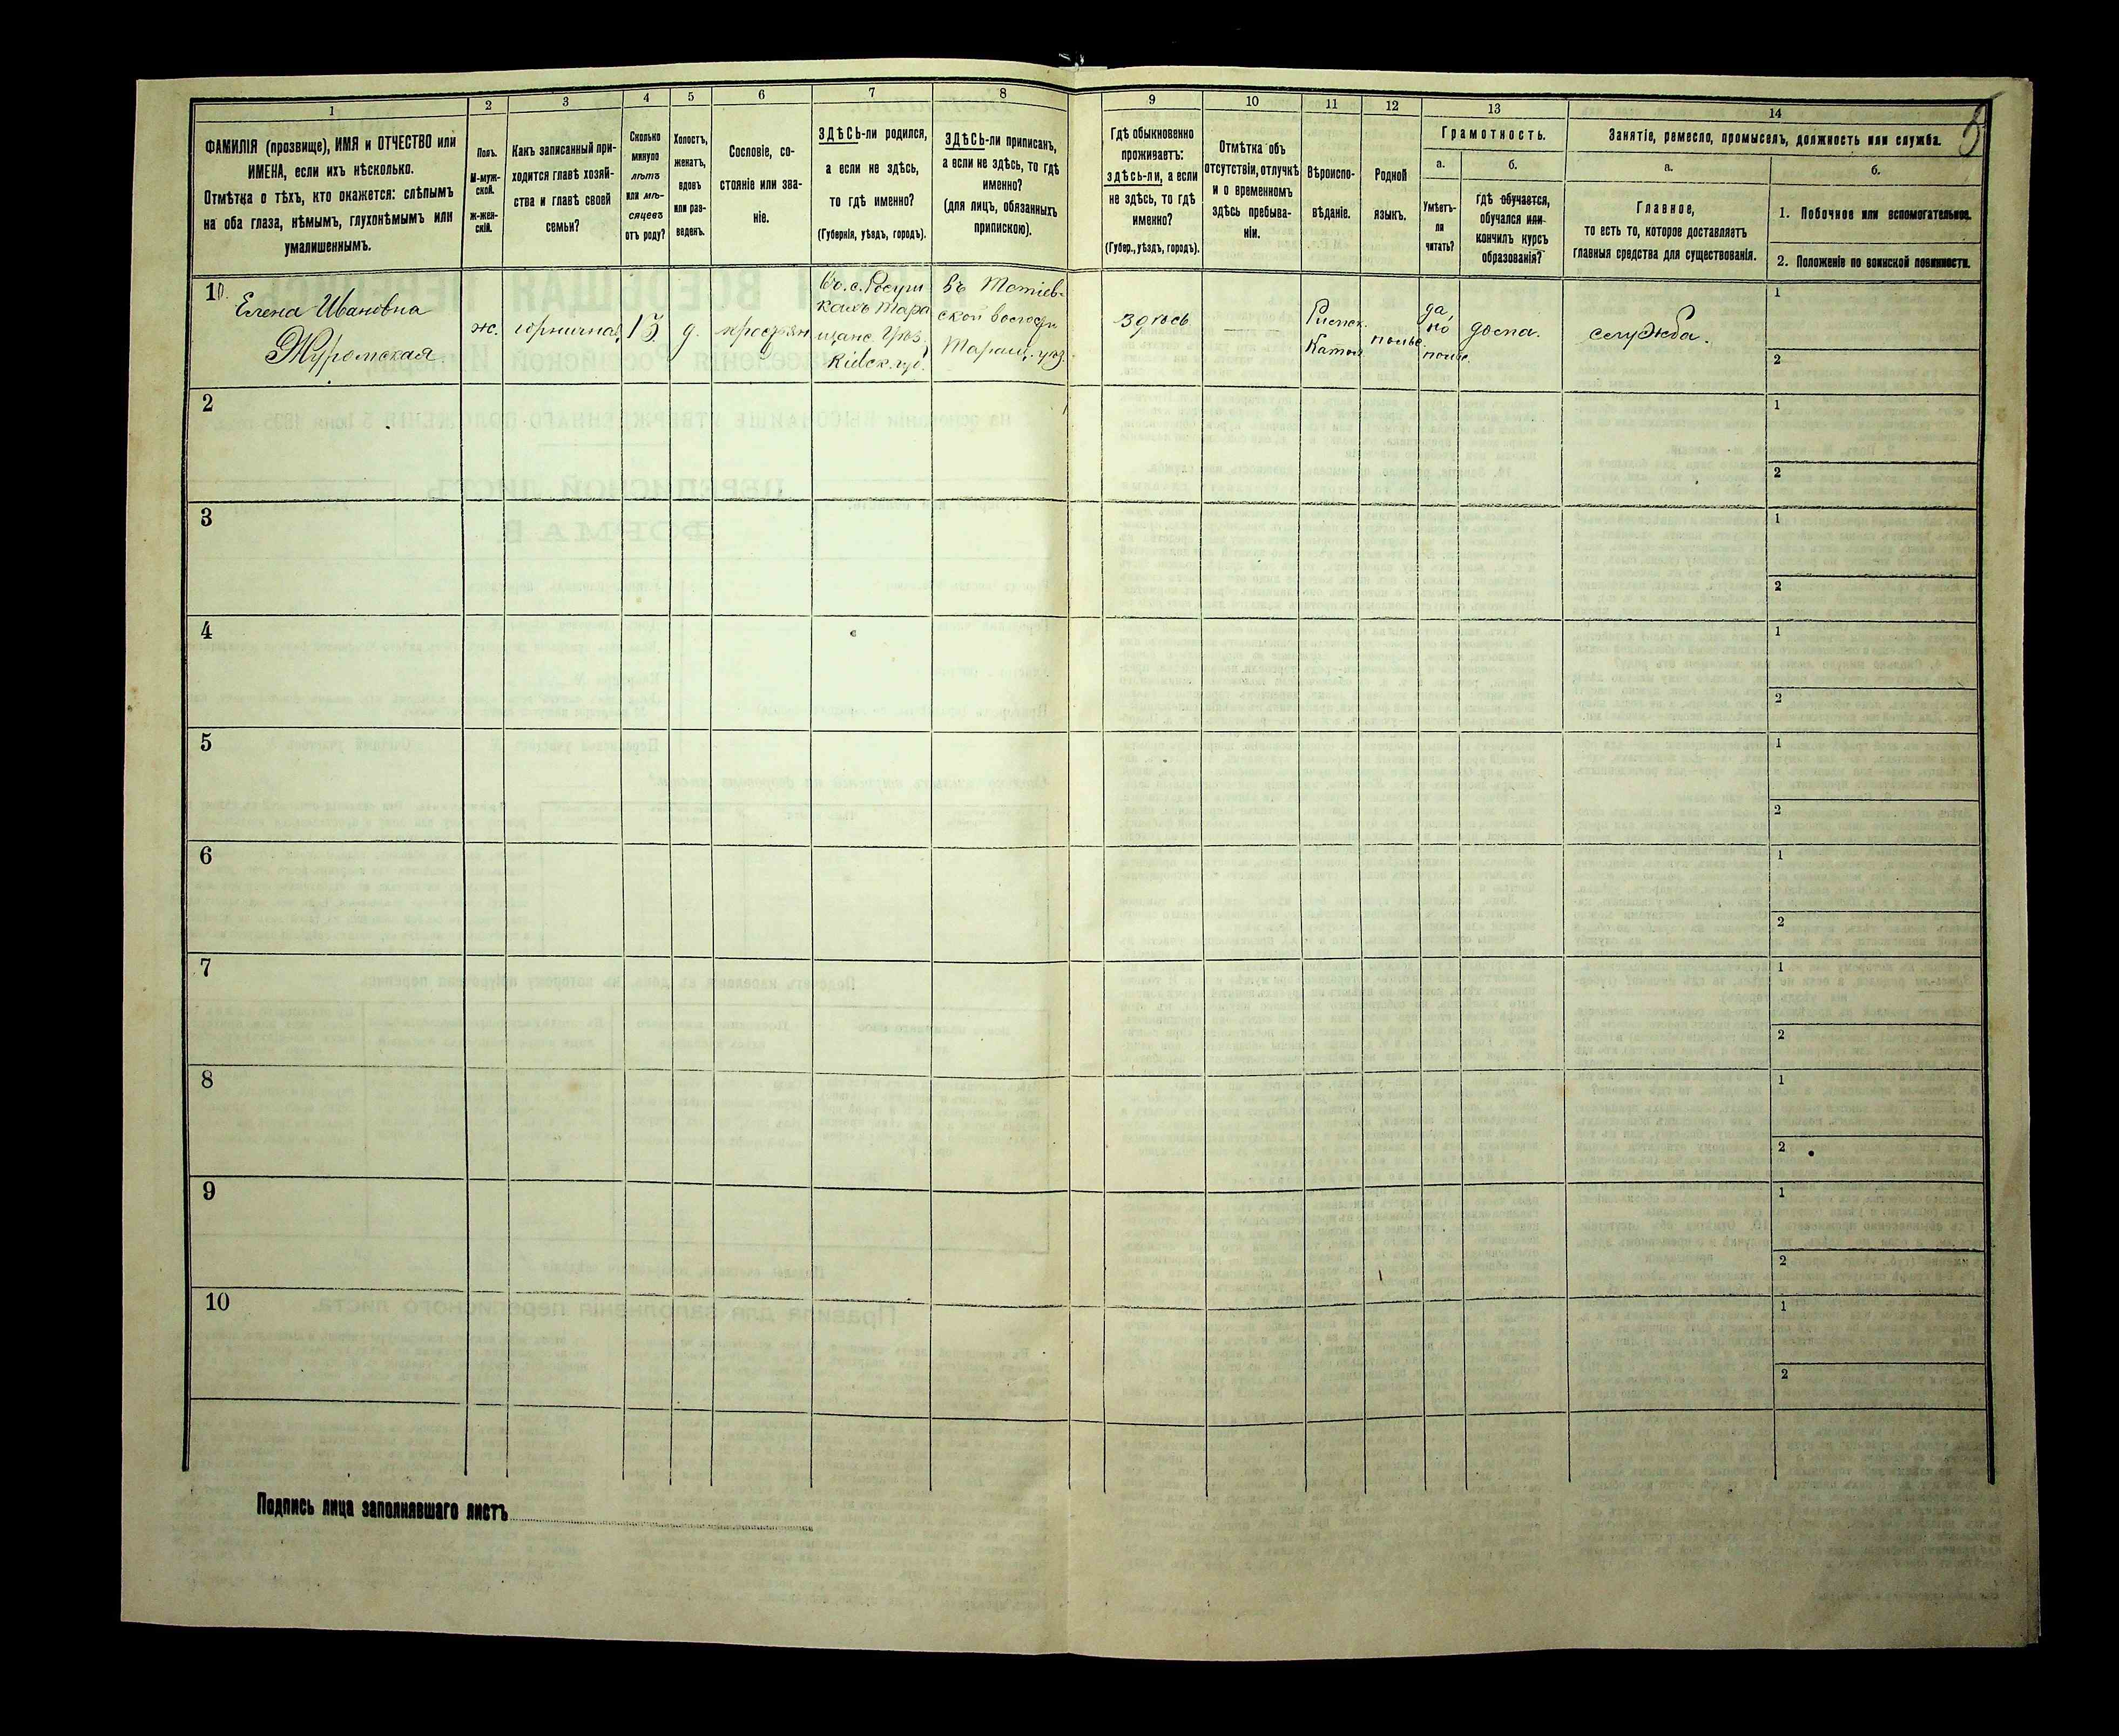 1
2
3
4
5
6
7
8
9
10
11
12
13
14
ФАМИЛІЯ (прозвище), ИМЯ и ОТЧЕСТВО или
ИМЕНА, если ихъ нѣсколько.
Отмѣтка о тѣхъ, кто окажется: слѣпымъ
на оба глаза, нѣмымъ, глухонѣмымъ или
умалишеннымъ.
Полъ.
М-муж-
ской.
Ж-жен-
скій.
Какъ записанный при-
ходится главѣ хозяй-
ства и главѣ своей
семьи?
Сколько
минуло
лѣтъ
или мѣ-
сяцевъ
отъ роду?
Холостъ,
женатъ,
вдовъ
или раз-
веденъ.
Сословіе, со-
стояніе или зва-
ніе.
ЗДѢСЬ-ли родился,
а если не здѣсь,
то гдѣ именно?
(Губернія, уѣздъ, городъ).
ЗДѢСЬ-ли приписанъ,
а если не здѣсь, то гдѣ
именно?
(для лицъ, обязанныхъ
припискою).
Гдѣ обыкновенно
проживаетъ:
здѣсь-ли, а если
не здѣсь, то гдѣ
именно?
(Губер., уѣздъ, городъ).
Отмѣтка объ
отсутствіи, отлучкѣ
и о временномъ
здѣсь пребыва-
ніи.
Вѣроиспо-
вѣданіе.
Родной
языкъ.
Грамотность.
а.
Умѣетъ-
ли
читать?
б.
гдѣ обучается,
обучался или
кончилъ курсъ
образованія?
Занятіе, ремесло, промыселъ, должность или служба.
а.
Главное,
то есть то, которое доставляетъ
главныя средства для существованія.
б.
1. Побочное или вспомогательное.
2. Положеніе по воинской повинности.
1
Елена Ивановна
Журомская
ж.
горничная
15
д.
крестьян
Во. с.
кахъ Тара
щанс. Уѣз.
Кіевск. губ.
Въ Тетіев-
ской волости
Таращ. уѣз.
здѣсь
Римск.
Катол.
польс.
да,
по
польс.
дома.
служба.
1
2
2
1
2
3
1
2
4
1
2
5
1
2
6
1
2
7
1
2
8
1
2
9
1
2
10
1
2
Подпись лица заполнявшаго листъ